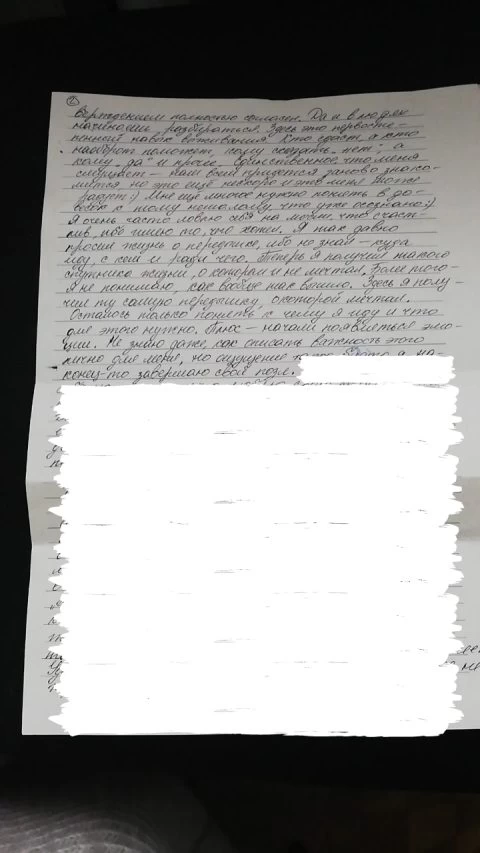 2
верждением полностью согласен. Да и в людях
начинаешь разбираться. Здесь это первосте-
пенный навык выживания. Кто сдаст, а кто
наоборот поможет, кому сказать „нет“, а
кому „да“ и прочее. Единственное что меня
смущает – нам вновь придется заново знако-
мится но это ещё нескоро и это меня тоже
радует:) Мне ещё многое нужно понять в до-
весок к тому немалому, что уже осознано:)
Я очень часто ловлю себя на мысли, что счаст-
лив, ибо имею то, что хотел. Я так давно
просил жизнь о передышке, ибо не знал – куда
иду, с кем и ради чего. Теперь я получил такого
спутника жизни, о котором и не мечтал. Более того –
я не понимаю, как вообще так вышло. Здесь я полу-
чил ту самую передышку, о которой мечтал.
Осталось только понять к чему я иду и что
для этого нужно. Плюс – начали появляться эмо-
ции. Не знаю даже, как описать важность этого
лично для меня, но ощущение такое, будто я на-
конец-то завершаю свой пазл.